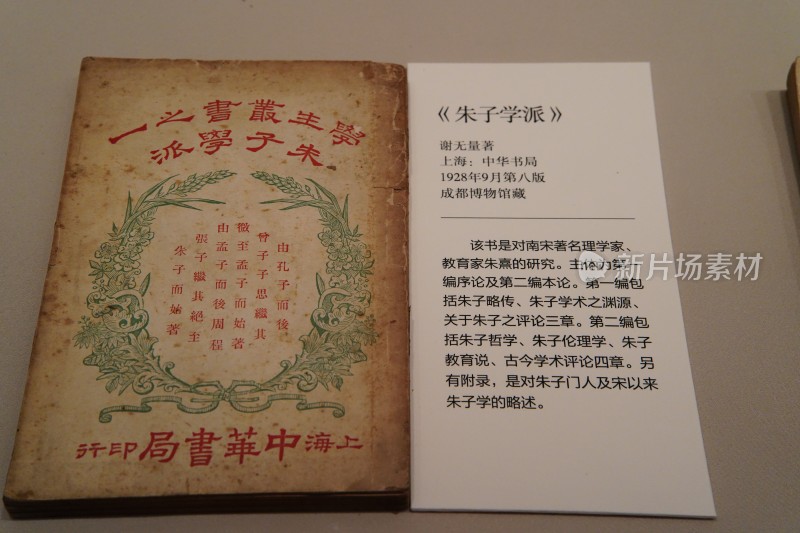 學生叢書之一
朱子學派
由孔子而後
曾子子思繼其
微至孟子而始著
由孟子而後周程
張子繼其絕至
朱子而始著
上海中華書局印行
《朱子学派》
谢无量著
上海：中华书局
1928年9月第八版
成都博物馆藏
该书是对南宋著名理学家、
教育家朱熹的研究。主体为第
编序论及第二编本论。第一编包
括朱子略传、朱子学术之渊源、
关于朱子之评论三章。第二编包
括朱子哲学、朱子伦理学、朱子
教育说、古今学术评论四章。另
有附录，是对朱子门人及宋以来
朱子学的略述。
新片场素材